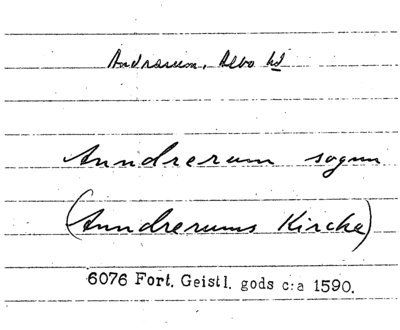 Andrarum, Albo hd
Anndrerum sognn
(Anndrerums Kircke)
6076 Fort. Geistl. gods c:a 1590.